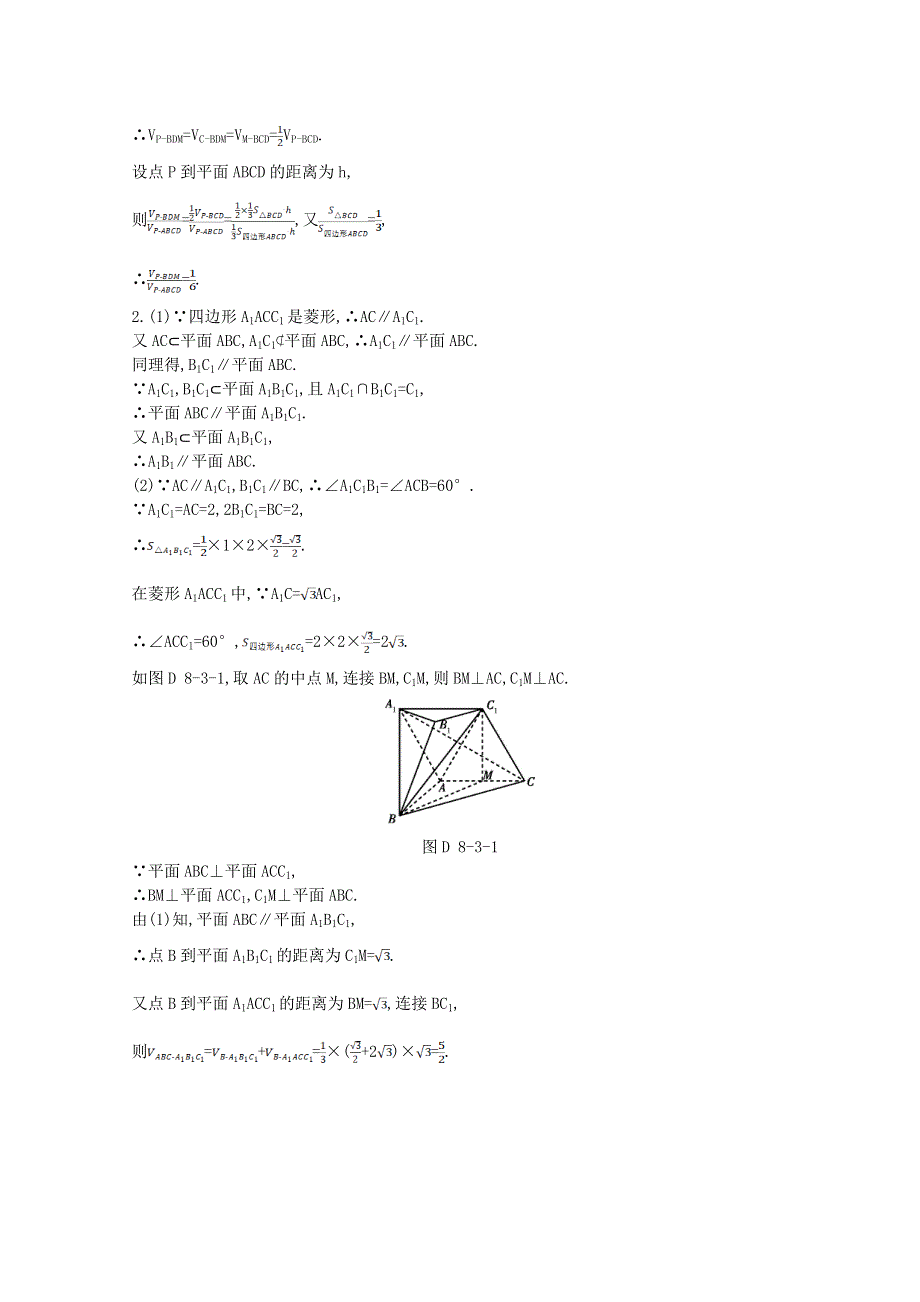 ∴V_{P-BDM}=V_{C-BDM}=V_{M-BCD}=\frac{1}{2}V_{P-BCD}.
设点P到平面ABCD的距离为h,
则\frac{V_{P-BDM}}{V_{P-ABCD}}=\frac{\frac{1}{2}V_{P-BCD}}{V_{P-ABCD}}=\frac{\frac{1}{2}×\frac{1}{3}S_{△BCD}·h}{\frac{1}{3}S_{四边形ABCD}·h},又\frac{S_{△BCD}}{S_{四边形ABCD}}=\frac{1}{3},
∴\frac{V_{P-BDM}}{V_{P-ABCD}}=\frac{1}{6}.
2.(1)∵四边形A₁ACC₁是菱形,∴AC∥A₁C₁.
又AC⊂平面ABC,A₁C₁⊄平面ABC,∴A₁C₁∥平面ABC.
同理得,B₁C₁∥平面ABC.
∵A₁C₁,B₁C₁⊂平面A₁B₁C₁,且A₁C₁∩B₁C₁=C₁,
∴平面ABC∥平面A₁B₁C₁.
又A₁B₁⊂平面A₁B₁C₁,
∴A₁B₁∥平面ABC.
(2)∵AC∥A₁C₁,B₁C₁∥BC,∴∠A₁C₁B₁=∠ACB=60°.
∵A₁C₁=AC=2,2B₁C₁=BC=2,
∴S_{△A₁B₁C₁}=\frac{1}{2}×1×2×\frac{√3}{2}=\frac{√3}{2}.
在菱形A₁ACC₁中,∵A₁C=√3AC₁,
∴∠ACC₁=60°,S_{四边形A₁ACC₁}=2×2×\frac{√3}{2}=2√3.
如图D 8-3-1,取AC的中点M,连接BM,C₁M,则BM⊥AC,C₁M⊥AC.
A₁
C₁
B₁
A
M
C
B
图D 8-3-1
∵平面ABC⊥平面ACC₁,
∴BM⊥平面ACC₁,C₁M⊥平面ABC.
由(1)知,平面ABC∥平面A₁B₁C₁,
∴点B到平面A₁B₁C₁的距离为C₁M=√3.
又点B到平面A₁ACC₁的距离为BM=√3,连接BC₁,
则V_{ABC-A₁B₁C₁}=V_{B-A₁B₁C₁}+V_{B-A₁ACC₁}=\frac{1}{3}×(\frac{√3}{2}+2√3)×√3=\frac{5}{2}.